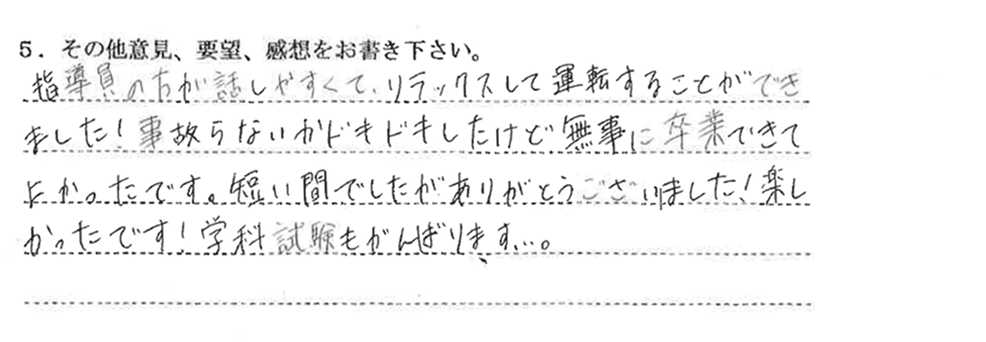 5．その他意見、要望、感想をお書き下さい。
指導員の方が話しやすくて、リラックスして運転することができ
ました！事故らないかドキドキしたけど無事に卒業できて
よかったです。短い間でしたがありがとうございました！楽し
かったです！学科試験もがんばります…。